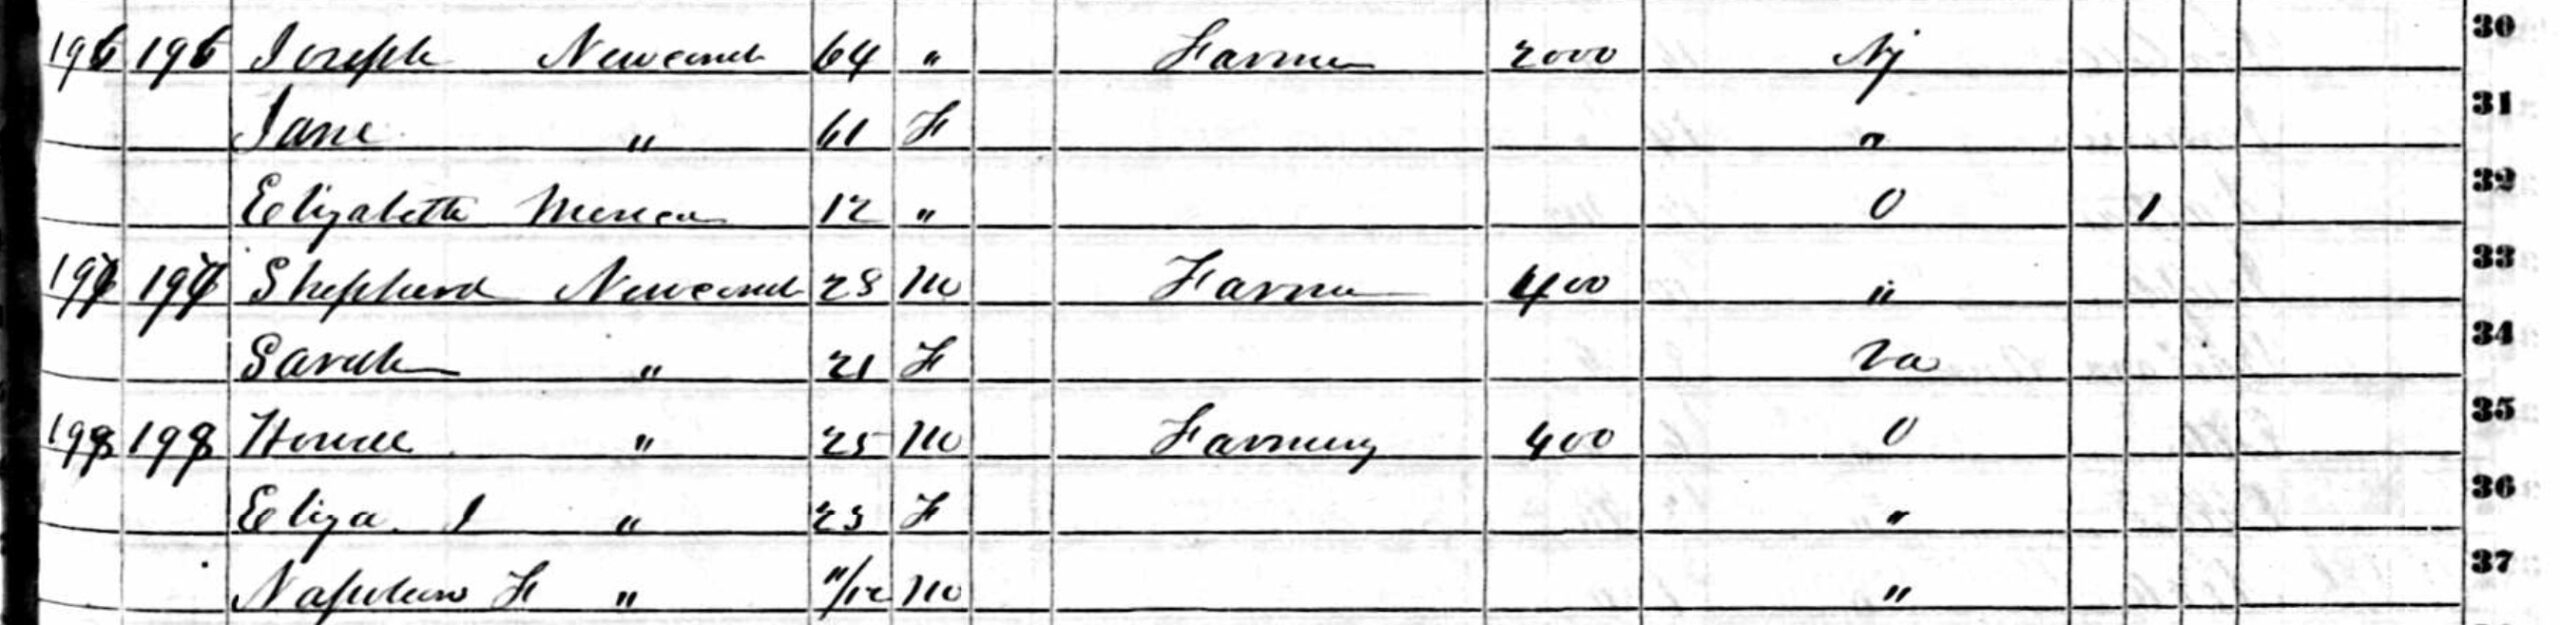 196 196 Joseph Newcomb 64 " Farmer 2000 NJ 30
Jane " 61 F " 31
Elizabeth 12 " O 1 32
197 197 Shepherd Newcomb 28 M Farmer 400 " 33
Sarah " 21 F Va 34
198 198 " 25 M Farming 400 O 35
Eliza J " 23 F " 36
Napoleon F " 11/12 M " 37